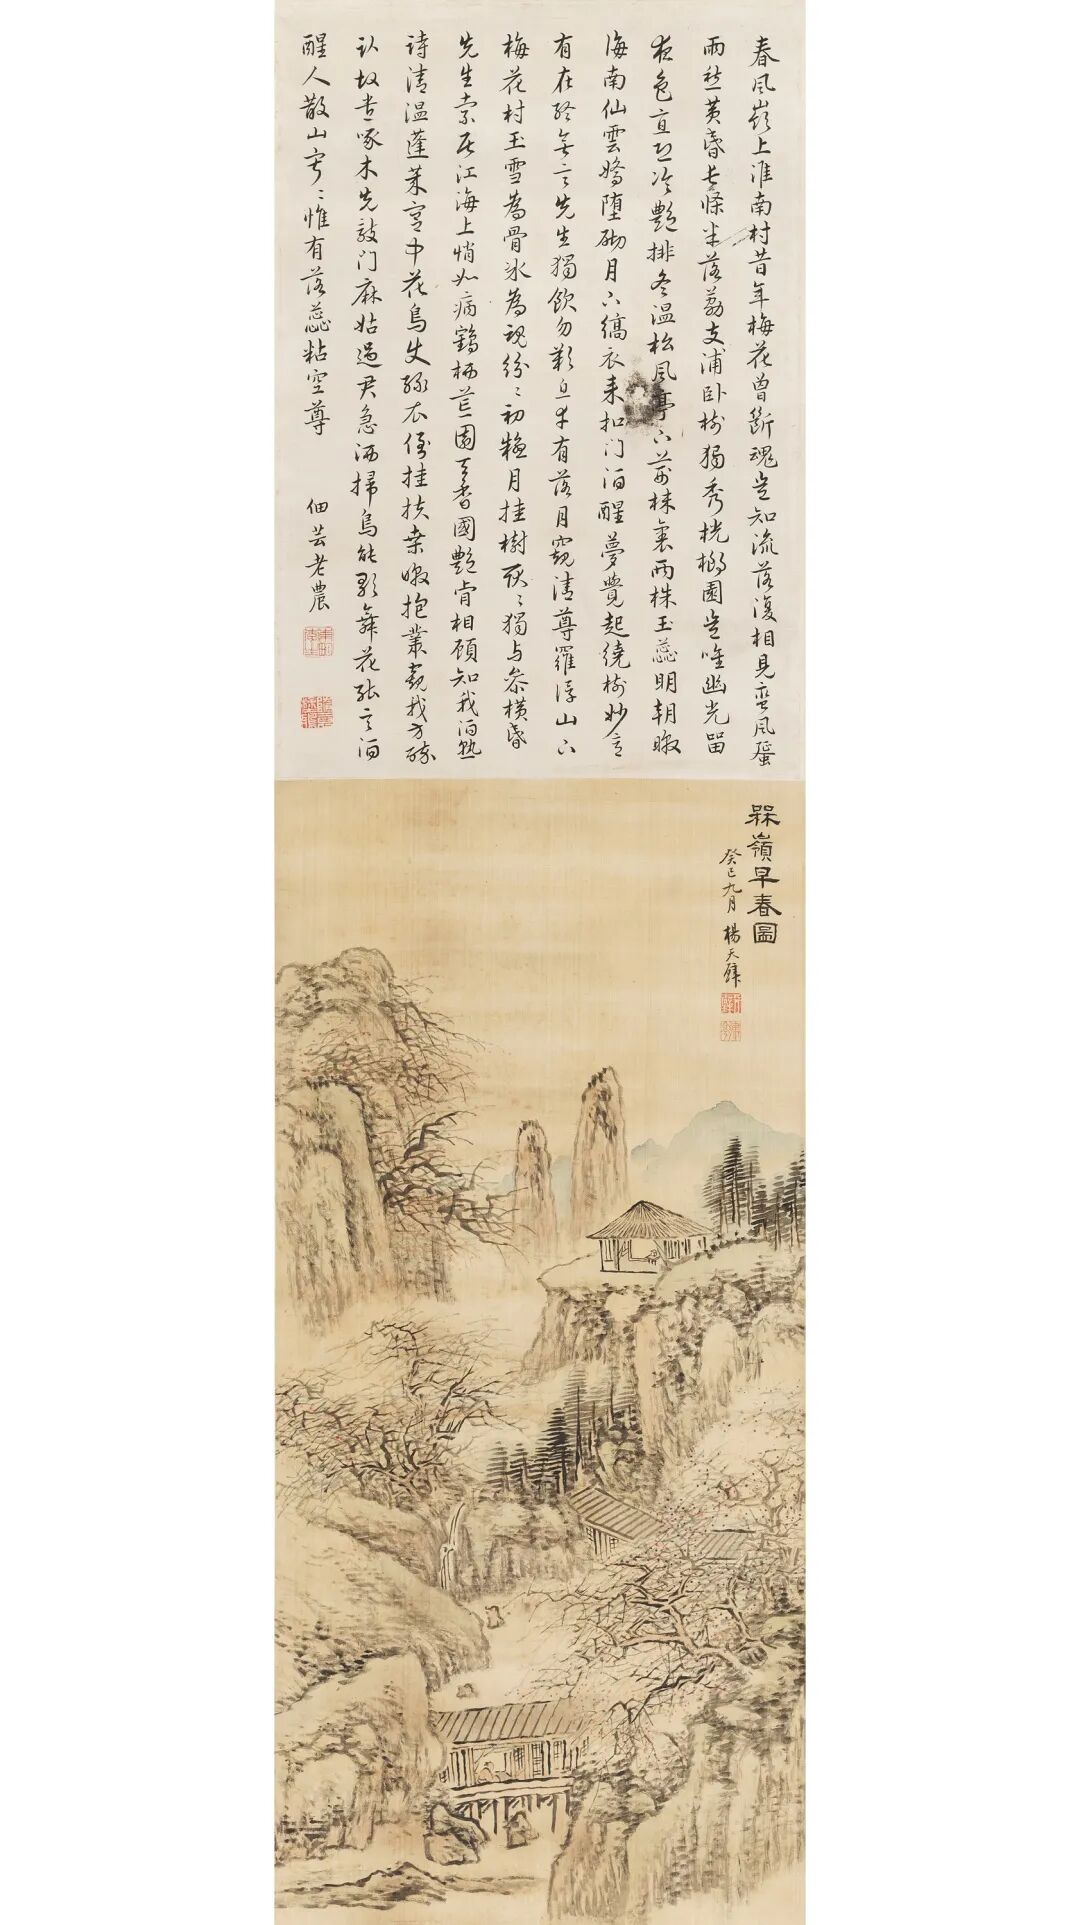 春風嶺上淮南村昔年梅花曾斷魂豈知流落復相見蠻風蜑
雨愁黃昏長條半落荔支浦臥樹獨秀桄榔園豈唯幽光留
夜色直恐冷艷排冬溫松風亭下荊棘裏兩株玉蕊明朝暾
海南仙雲嬌墮砌月下縞衣來扣門酒醒夢覺起繞樹妙意
有在終無言先生獨飲勿歎息幸有落月窺清尊羅浮山下
梅花村玉雪為骨冰為魂紛〻初疑月挂樹耿〻獨与參橫昏
先生索居江海上悄如病鶴栖荒園天香國艷肯相顧知我酒熟
詩清溫蓬萊宮中花鳥使綠衣倒挂扶桒暾抱叢窺我方醉
臥故遣啄木先敲門麻姑過君急洒掃鳥能歌舞花能言酒
醒人散山寂〻惟有落蕊粘空尊
佃芸老農
槑嶺早春圖
癸巳九月 楊天璧